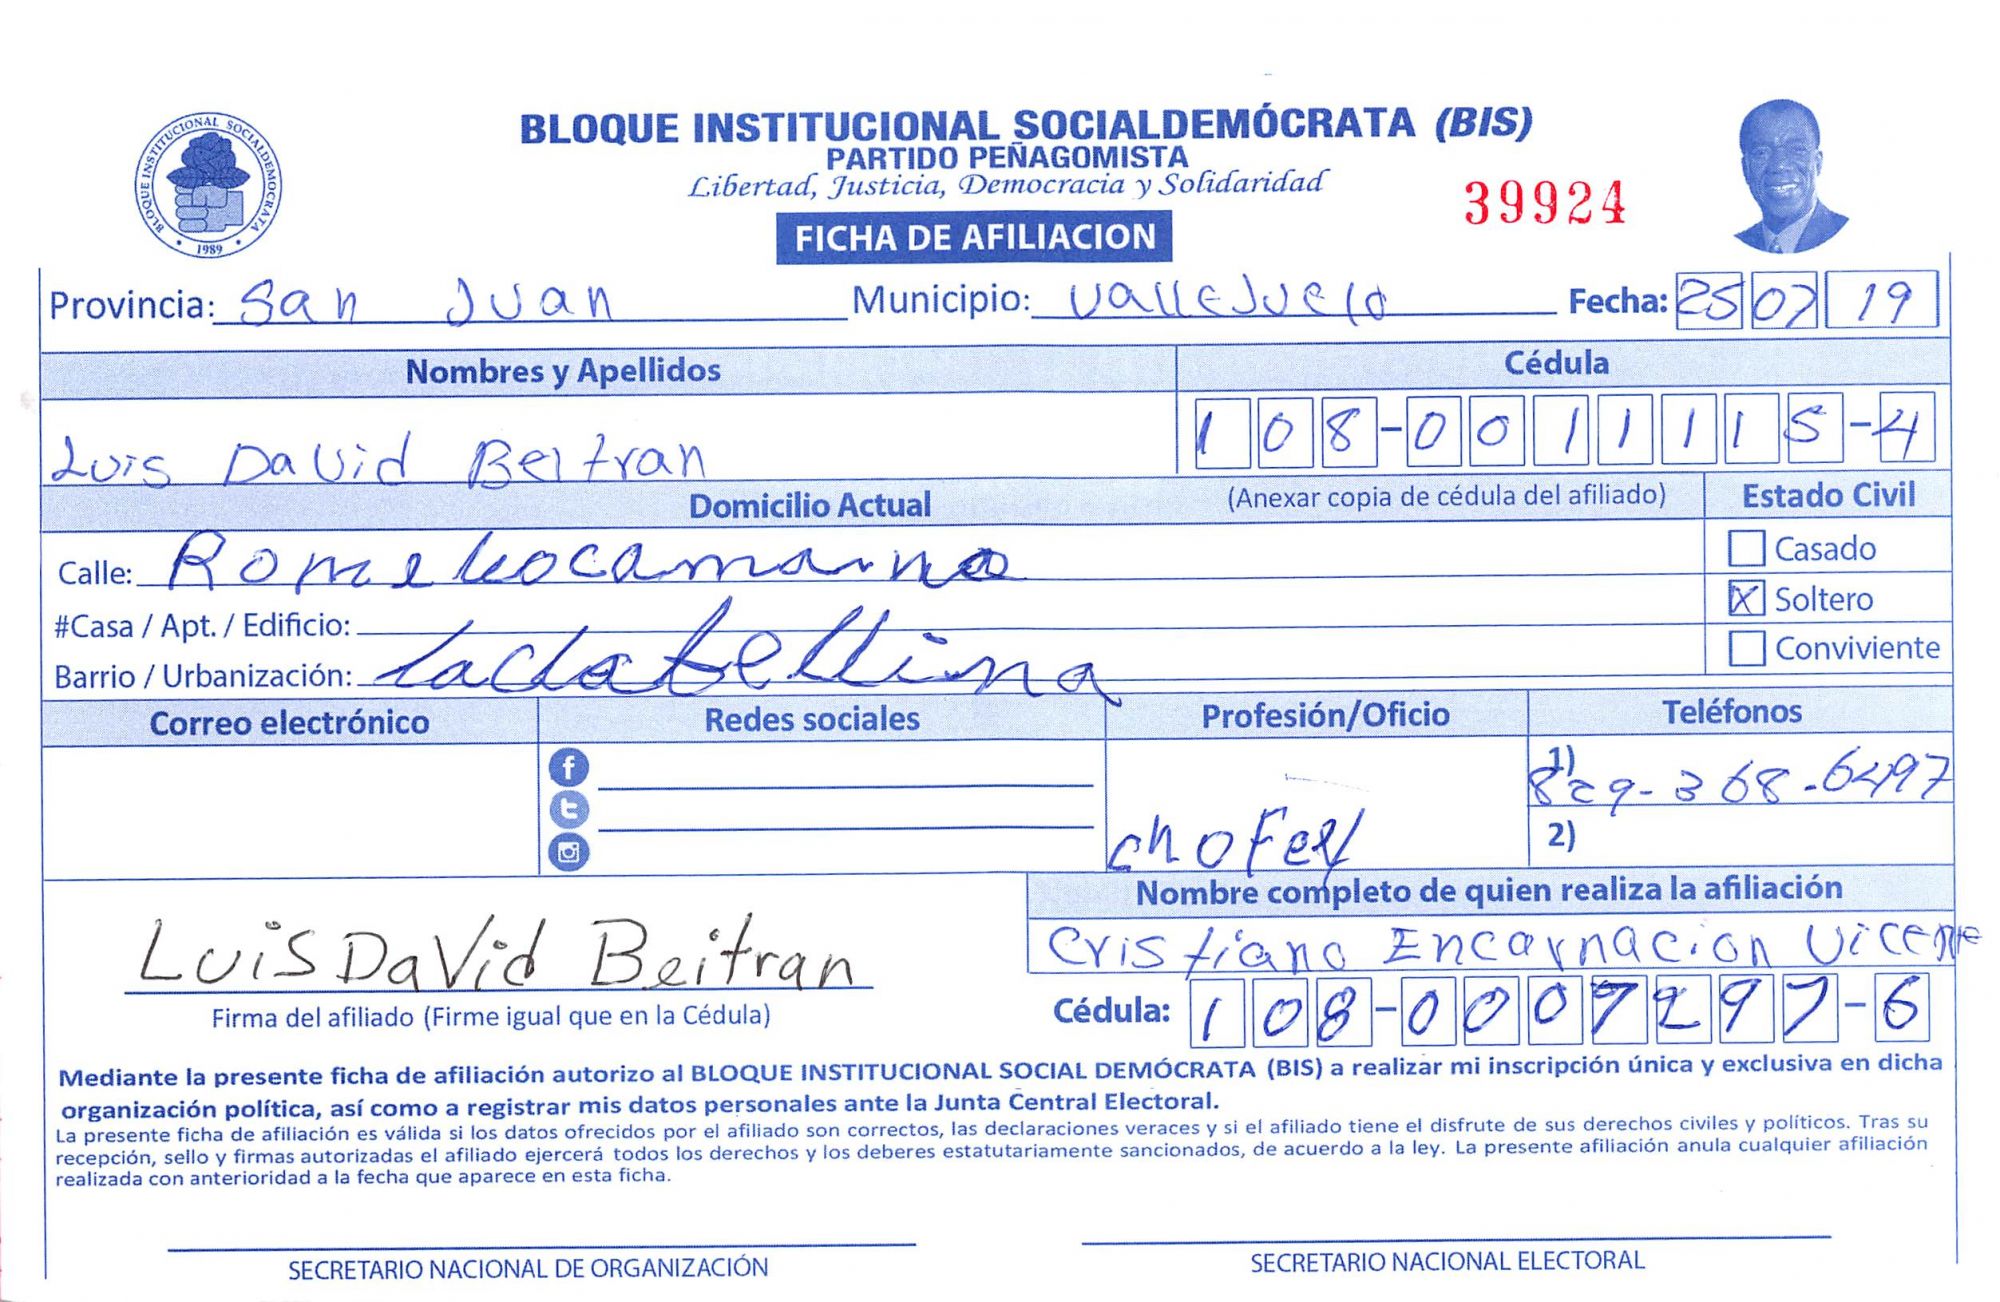 BLOQUE INSTITUCIONAL SOCIALDEMOCRATA
1989
BLOQUE INSTITUCIONAL SOCIALDEMÓCRATA (BIS)
PARTIDO PEÑAGOMISTA
Libertad, Justicia, Democracia y Solidaridad
39924
FICHA DE AFILIACION
Provincia: San Juan Municipio: VallEJuelo Fecha: 25 07 19
Nombres y Apellidos Cédula
Luis David Beltran 108-0011115-4
Domicilio Actual (Anexar copia de cédula del afiliado) Estado Civil
Calle: Casado
#Casa / Apt. / Edificio: X Soltero
Barrio / Urbanización: Conviviente
Correo electrónico Redes sociales Profesión/Oficio Teléfonos
1) 829-368-6497
chofer 2)
Nombre completo de quien realiza la afiliación
LuisDaVid Beitran Cristiano Encarnacion Vicente
Firma del afiliado (Firme igual que en la Cédula) Cédula: 108-0007297-6
Mediante la presente ficha de afiliación autorizo al BLOQUE INSTITUCIONAL SOCIAL DEMÓCRATA (BIS) a realizar mi inscripción única y exclusiva en dicha
organización política, así como a registrar mis datos personales ante la Junta Central Electoral.
La presente ficha de afiliación es válida si los datos ofrecidos por el afiliado son correctos, las declaraciones veraces y si el afiliado tiene el disfrute de sus derechos civiles y políticos. Tras su
recepción, sello y firmas autorizadas el afiliado ejercerá todos los derechos y los deberes estatutariamente sancionados, de acuerdo a la ley. La presente afiliación anula cualquier afiliación
realizada con anterioridad a la fecha que aparece en esta ficha.
SECRETARIO NACIONAL DE ORGANIZACIÓN SECRETARIO NACIONAL ELECTORAL